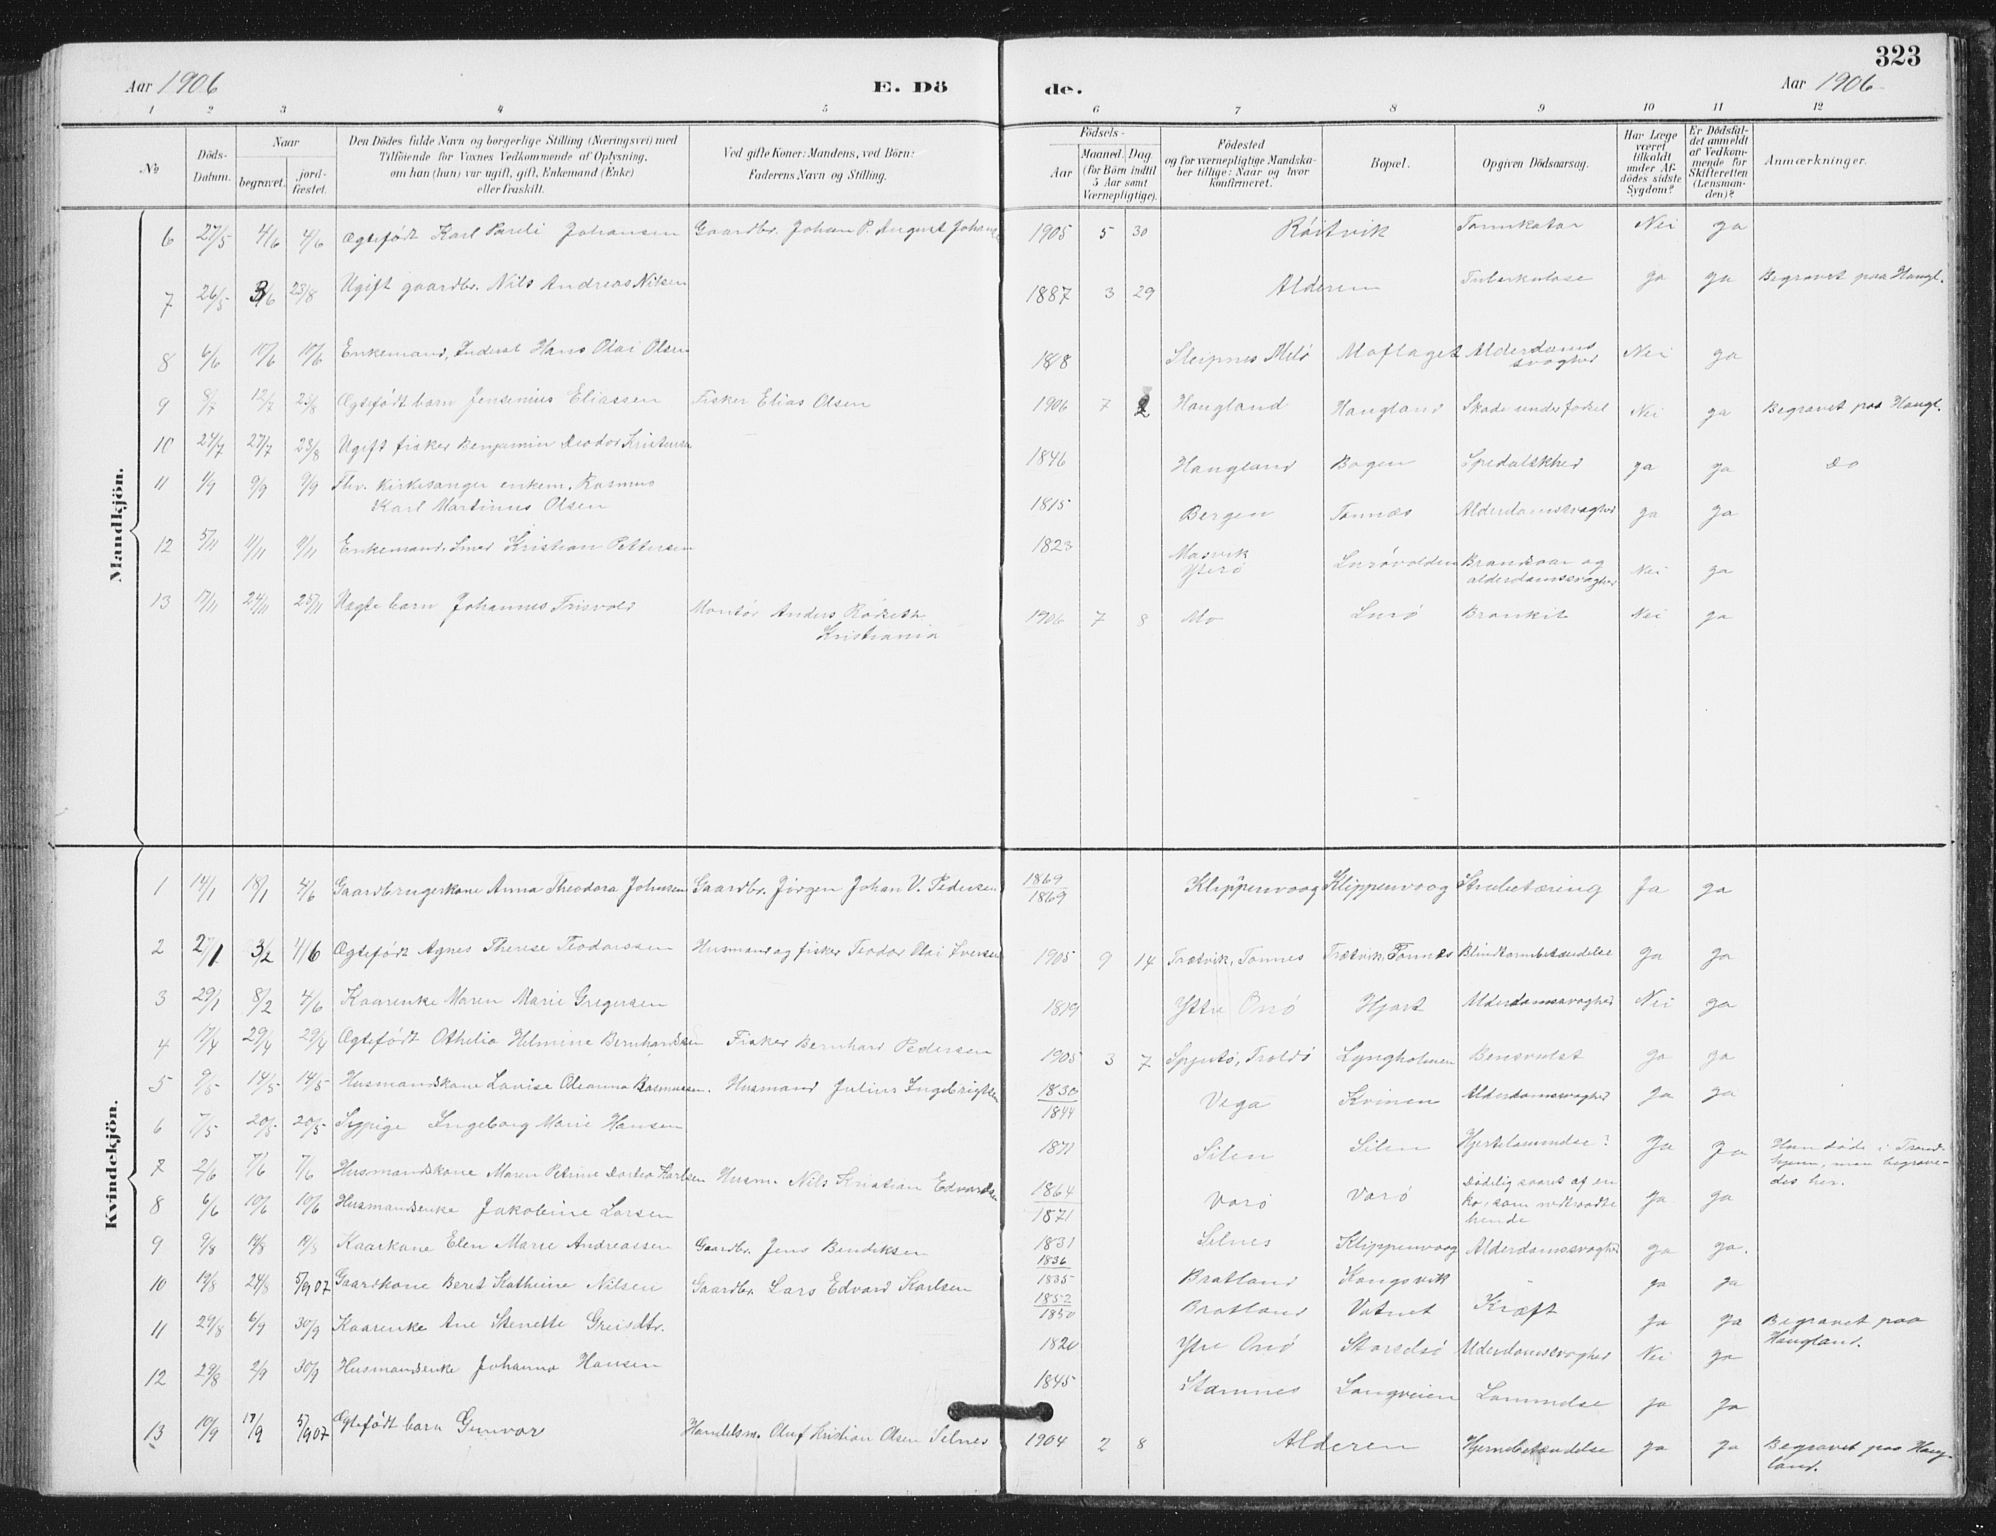 323
Aar 1906 E. Dö de. Aar 1906
1 2 3 4 5 6 7 8 9 10 11 12
No
Döds-Datum.
Naar
begravet.
jord-fæstet.
Den Dödes fulde Navn og borgerlige Stilling (Næringsvei) med
Tilföiende for Voxnes Vedkommende af Oplysning,
om han (hun) var ugift, gift, Enkemand (Enke)
eller fraskilt.
Ved gifte Koner: Mandens, ved Börn:
Faderens Navn og Stilling.
Födsels-
Aar
Maaned. Dag
(for Börn indtil
5 Aar samt
Værnepligtige).
Födested
og for værnepligtige Mandska-
ber tillige: Naar og hvor
konfirmeret.
Bopæl.
Opgiven Dödsaarsag.
Har Læge
været
tilkaldt
under Af-
dödes sidste
Sygdom?
Er Dödsfal-
det anmeldt
af Vedkom-
mende for
Skifteretten
(Lensman-
den)?
Anmærkninger.
Mandkjön.
6 27/5 4/6 4/6 Ægtefødt Karl Pareli Johansen Gaardbr. Johan P. August 1905 5 30 Røitvik Nei ja
7 26/5 3/6 23/8 Ugift gaardbr. Nils Andreas Nilsen 1887 3 29 Alderen Tuberkulose ja ja Begravet paa Haugl.
8 6/6 10/6 10/6 Enkemand, Inderst Hans Olai Olsen Sleipnes Melø Moflaget Alderdomssvaghed Nei ja
9 8/7 12/7 23/8 Ægtefødt barn Jensenius Eliassen Fisker Elias Olsen 1906 7 2 Haugland Haugland Skade under fødsel Nei ja Begravet paa Haugl.
10 24/7 27/7 23/8 Ugift fisker Benjamin Teodor 1846 Haugland Bogen Spedalskhed ja ja do
11 4/9 9/9 9/9 Fhv. kirkesanger enkem. Rasmus
Karl Martinus Olsen 1815 Bergen Tonnes Alderdomssvaghed ja ja
12 5/11 11/11 11/11 Enkemand. Smed Kristian Pettersen 1823 Masvik
Yterø Lurøvolden Brandsaar og
alderdomssvaghed Nei ja
13 17/11 24/11 25/11 Uægte barn Johannes Trisvold Montør Anders Røkseth
Kristiania 1906 7 8 Mo Lurø Bronkit Nei ja
Kvindekjön.
1 14/1 18/1 4/6 Gaardbrugerkone Anna Theodora Johnsen Gaardbr. Jørgen Johan V. Pedersen 1869
1869 Klippenvaag Klippenvaag Strubetæring Ja ja
2 3/2 4/6 Ægtefødt Agnes Therese Teodorssen Husmand og fisker Teodor Olai Iversen 1905 9 14 Trætvik, Tonnes Trætvik, Tonnes Blindtarmbetændelse ja ja
3 29/1 8/2 4/6 Kaarenke Maren Marie Gregersen 1819 Ytre Onø Hjart Alderdomssvaghed Nei ja
4 17/4 29/4 29/4 Ægtefødt Othelia Helmine Bernhardsen Fisker Bernhard Pedersen 1905 3 7 Spjutø, Troldø Lyngholmen Bensvulst ja ja
5 9/5 14/5 14/5 Husmandskone Lovise Oleanna Rasmussen. Husmand Julius Ingebrigtsen 1830
1844 Vega Kvinen Alderdomssvaghed ja ja
6 7/5 20/5 20/5 Sypige Ingeborg Marie Hansen 1871 Silen Silen Hjertelammelse? Ja Ja Hun døde i Trond-
hjem, men begrave-
des her.
7 2/6 7/6 7/6 Husmandskone Maren Petrine Dortea Karlsen Husm. Nils Kristian Edvardsen 1864
1871 Varø Varø Dødelig saaret af en
ko, som nedtraadte
hende ja ja
8 6/6 10/6 10/6 Husmandsenke Jakobine Larsen 1831 Selnes Klippenvaag Alderdomssvaghed ja ja.
9 9/8 14/8 14/8 Kaarkone Elen Marie Andreassen Gaardbr. Jens Bendiksen 1836
1835 Bratland Kongsvik - ja ja
10 19/8 24/8 5/9 07 Gaardkone Beret Kathrine Nilsen Gaardbr. Lars Edvard Karlsen 1852
1850 Bratland Vatnet Kræft ja ja Begravet paa
Haugland.
11 29/8 6/9 30/9 Kaarenke Ane Stenette Greisdtr. 1820 Ytre Onø Storselsø Alderdomssvaghed Nei ja
12 29/8 2/9 30/9 Husmandsenke Johanna Hansen 1845 Stamnes Langveien Lammelse ja ja
13 10/9 17/9 5/9 07 Ægtefødt barn Gunvor Handelsm. Oluf Kristian Olsen Selnes 1904 2 8 Alderen Hjernebetændelse ja ja Begravet paa Haug-
land.